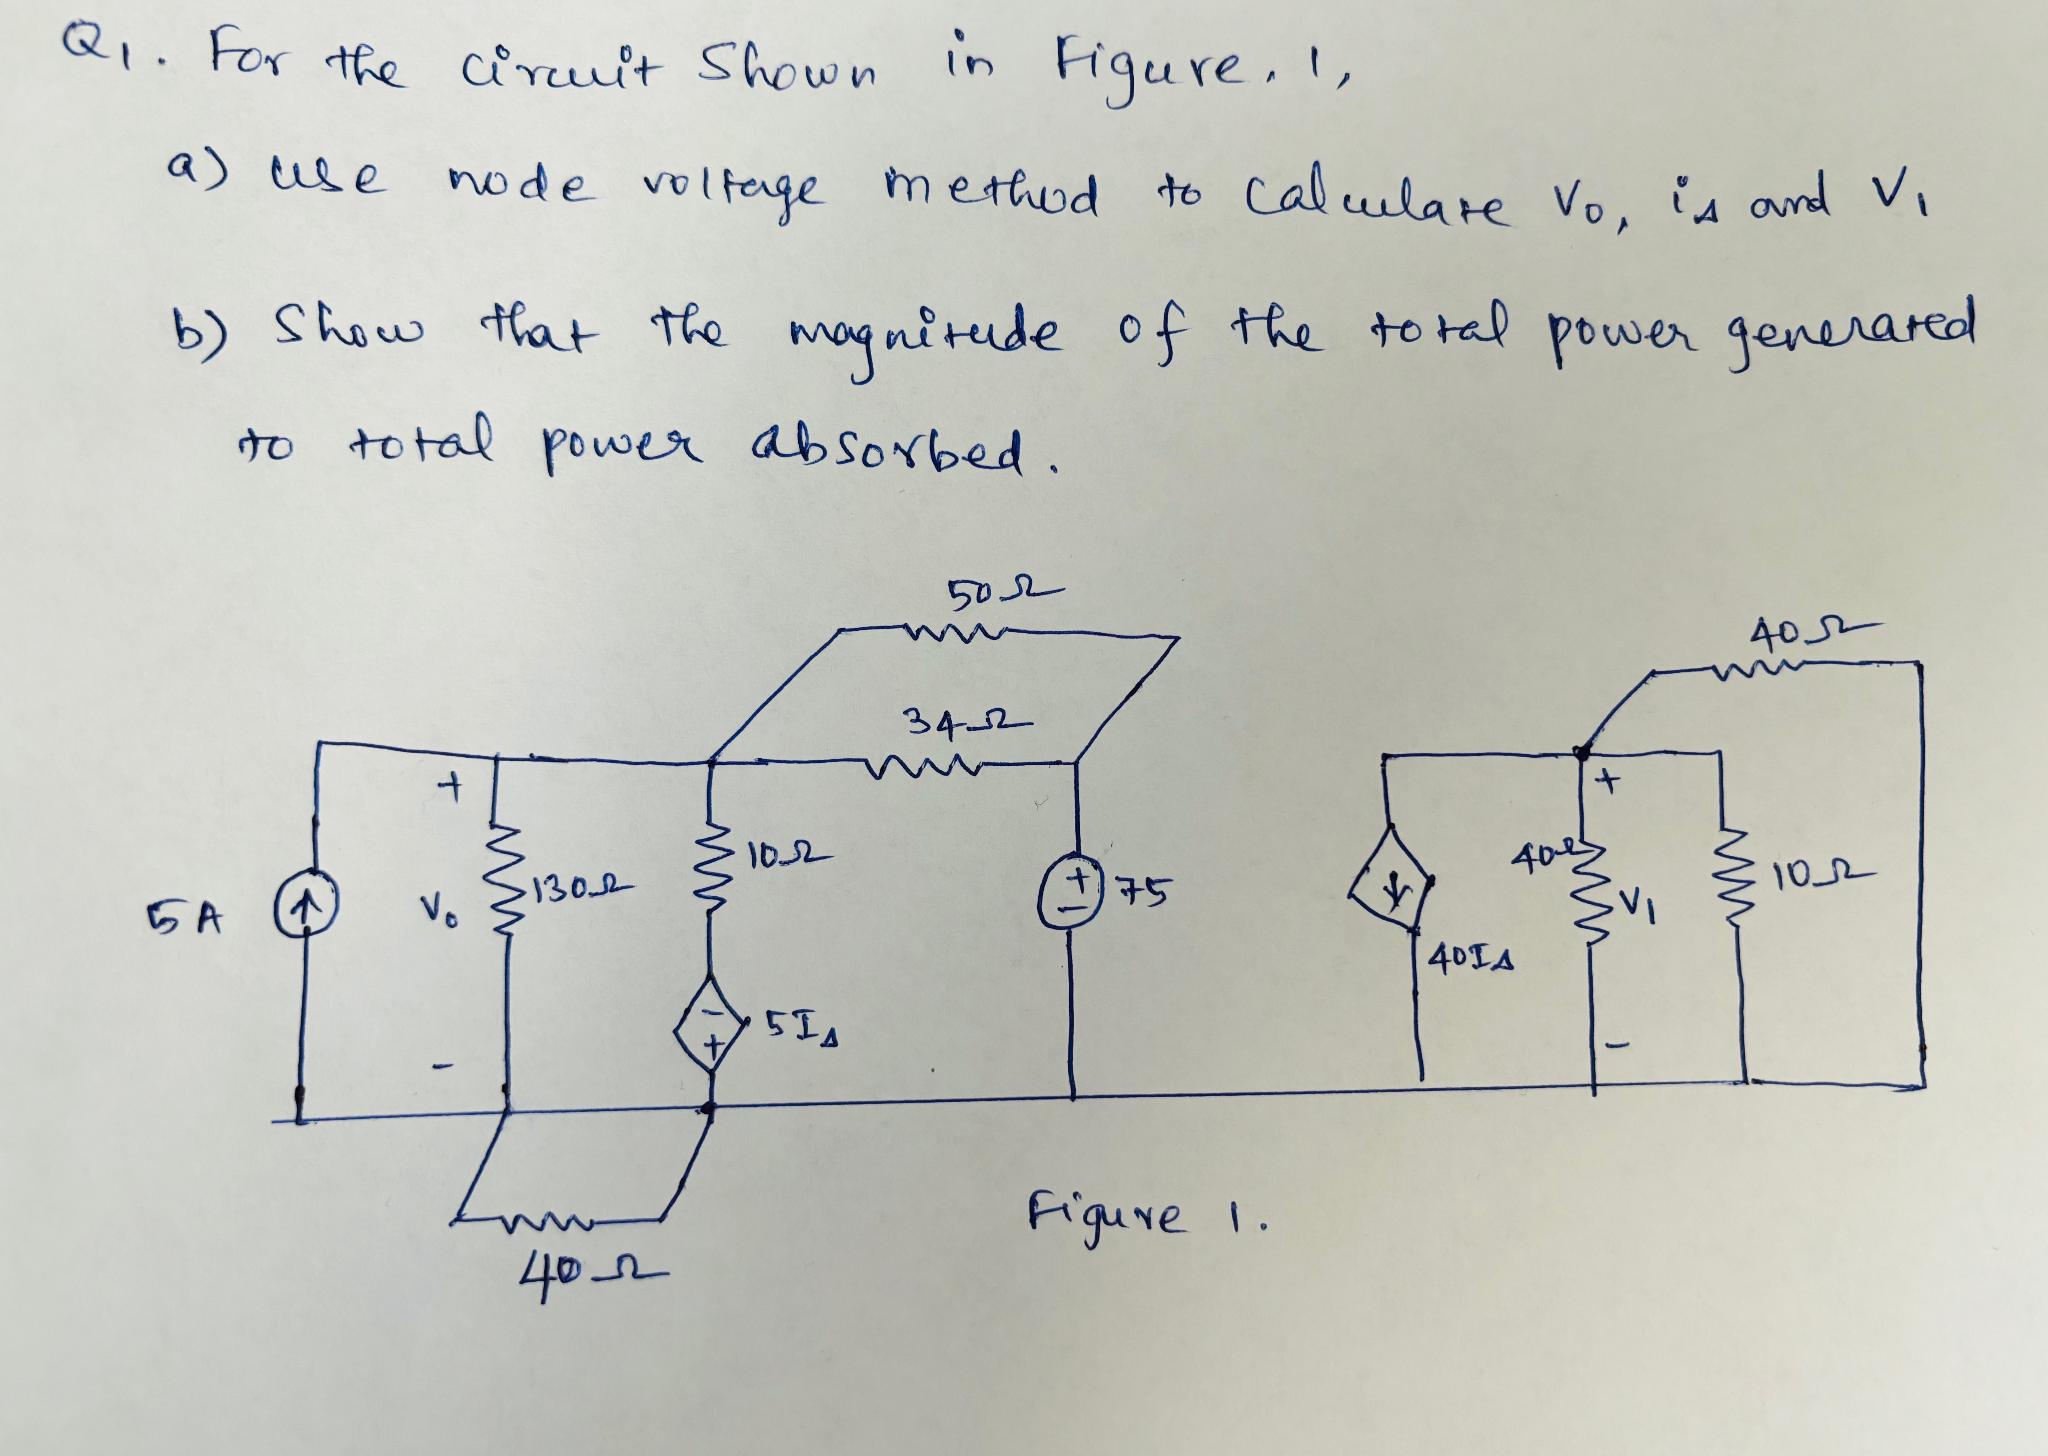 Q1. For the circuit shown in Figure. 1,
a) use node voltage method to calculate Vo, iΔ and V1
b) Show that the magnitude of the total power generated
to total power absorbed.
50Ω
40Ω
34Ω
+
+
10Ω
40Ω
10Ω
5A
Vo
130Ω
+
-
75
V1
40IΔ
-
+
5IΔ
-
-
Figure 1.
40Ω